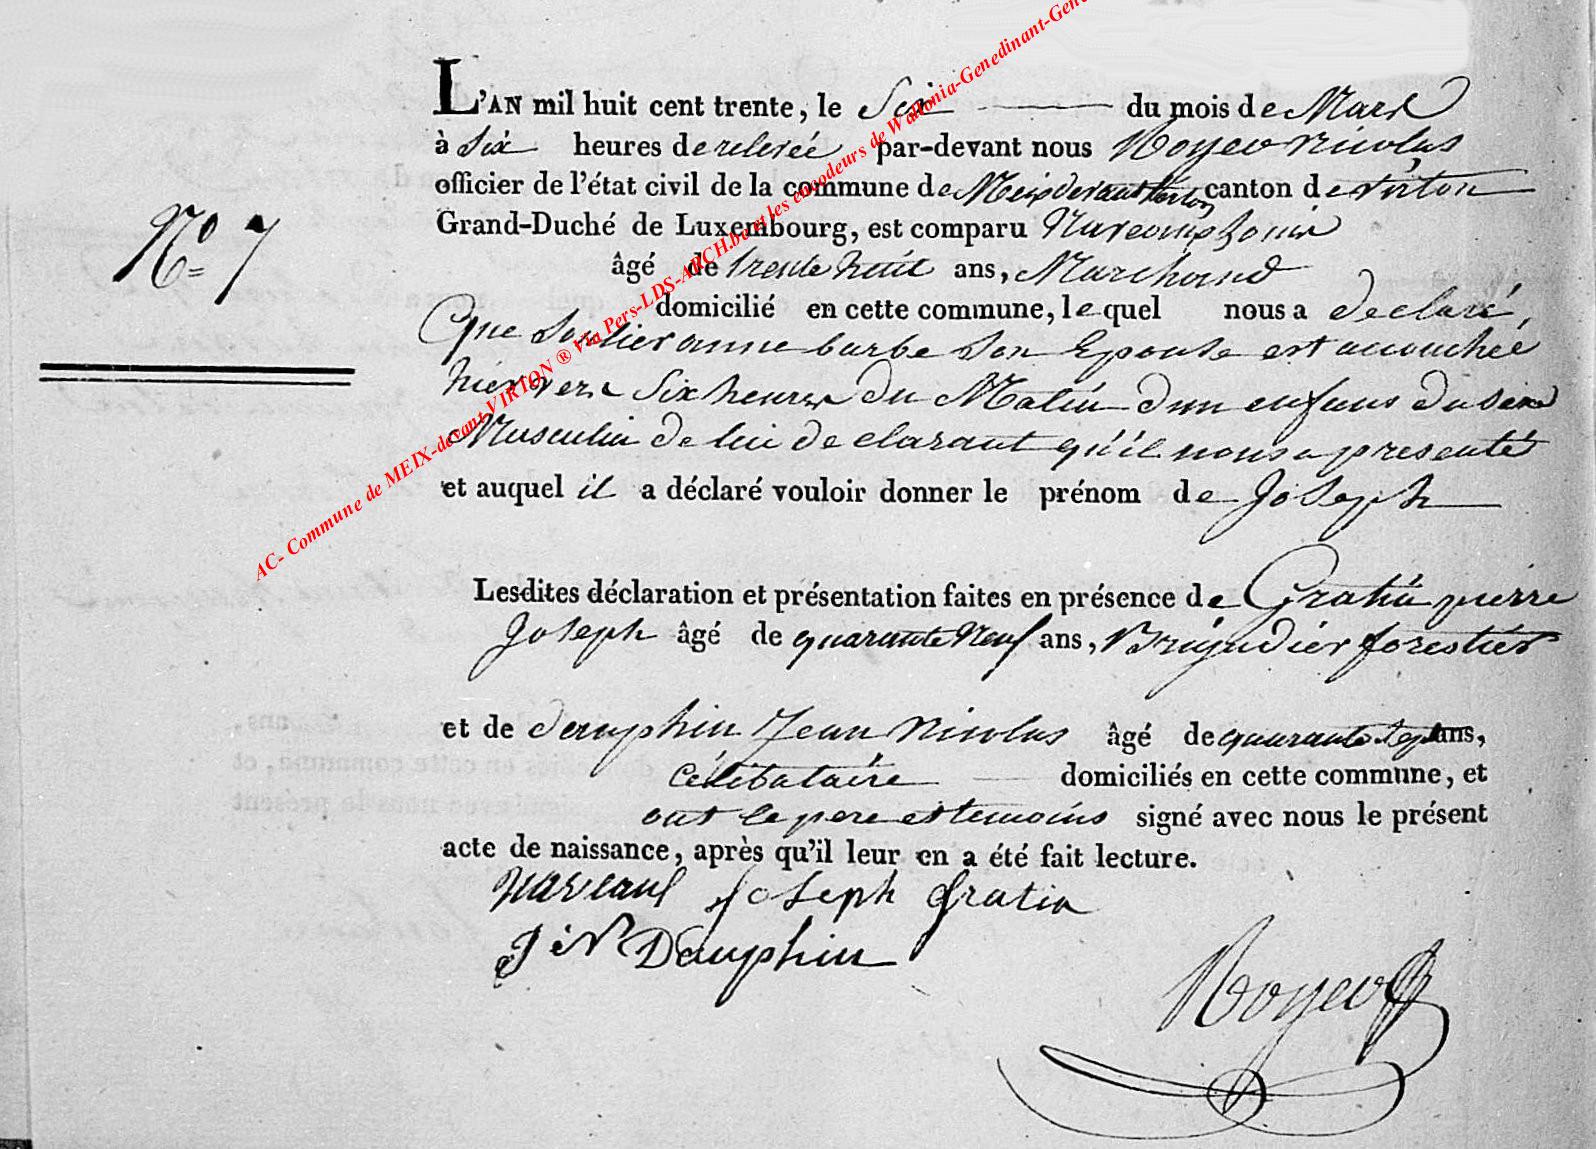 L'AN mil huit cent trente, le Six du mois de Mars
à Six heures de relevée par-devant nous Royer Nicolas
officier de l'état civil de la commune de Meix devant Virton canton de virton
Grand-Duché de Luxembourg, est comparu
âgé de trente huit ans, Marchand
domicilié en cette commune, le quel nous a declaré,
Que anne barbe Son Epouse est accouchée
hier vers Six heures du Matin d'un enfans du sexe
Masculin de lui declarant qu'il nous a presenté
et auquel il a déclaré vouloir donner le prénom de Joseph
N° 7
Lesdites déclaration et présentation faites en présence de Gratia pierre
Joseph âgé de quarante Neuf ans, Brigadier forestier
et de dauphin Jean Nicolas âgé de quarante Sept ans,
célibataire domiciliés en cette commune, et
ont le pere et temoins signé avec nous le présent
acte de naissance, après qu'il leur en a été fait lecture.
Joseph Gratia
J N Dauphin
Royer
AC- Commune de MEIX-devant VIRTON ® Via Pers-LDS-ARCH.be et les encodeurs de Wallonia-Genedinant-Gene